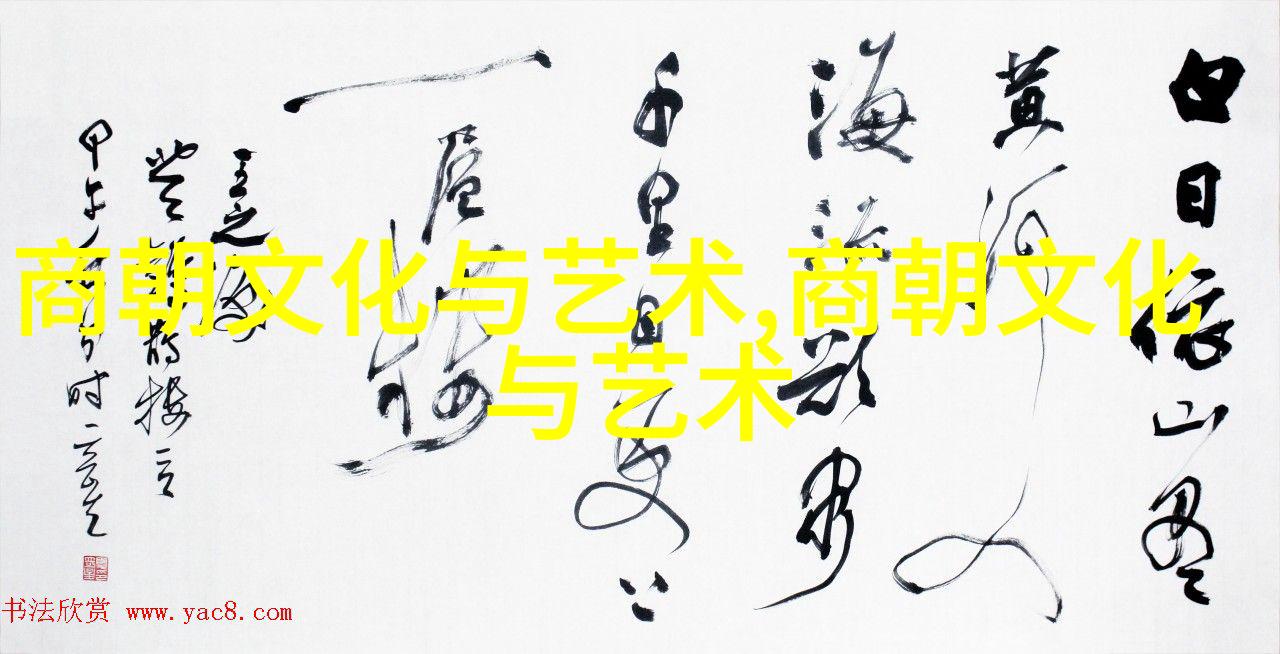 商朝文化与艺术,商朝文化
与艺术
白日依山尽
黄河入
海流欲穷
千里目更上
一层楼
王之涣
书法欣赏 www.yac8.com